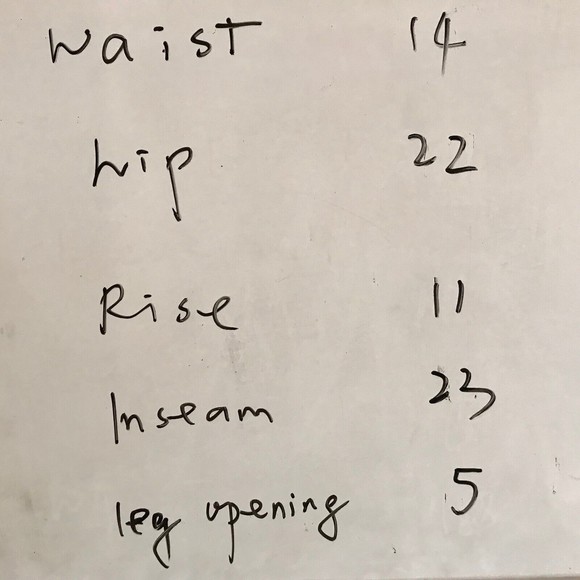 waist 14
hip 22
Rise 11
Inseam 23
leg opening 5